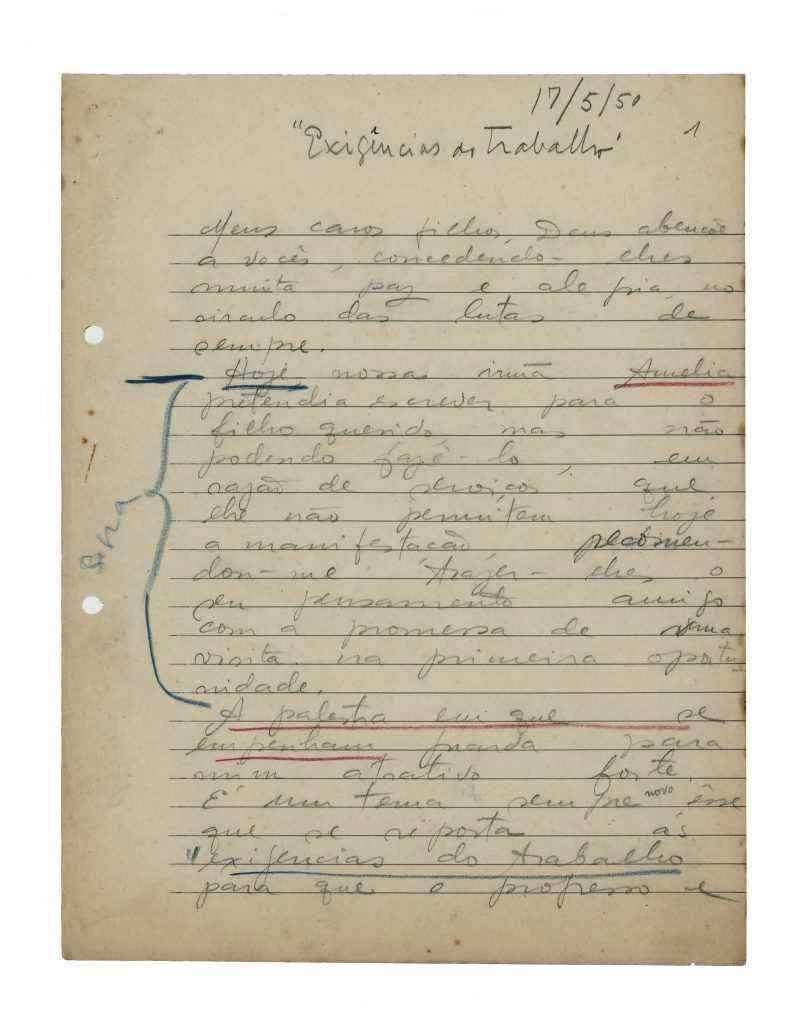 17/5/50
1
"Exigências do Trabalho"
Meus caros filhos, Deus abençôe
a vocês, concedendo-lhes
muita paz e alegria no
circulo das lutas de
sempre.
Hoje, nossa irmã Amelia
pretendia escrever para o
filho querido, mas não
podendo fazê-lo, em
razão de serviços que
lhe não permitem hoje
a manifestação, recomen-
dou-me trazer-lhes o
seu pensamento amigo
com a promessa de uma
visita na primeira oportu-
nidade.
A palestra em que se
empenham guarda para
mim atrativo forte.
E' um tema sempre novo êsse
que se reporta ás
"exigencias do trabalho
para que o progresso e